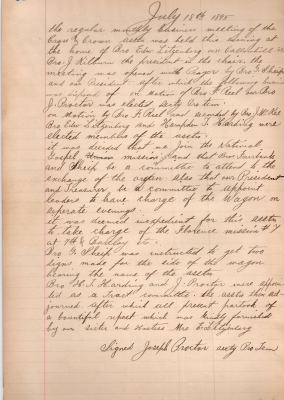 July 18th 1895
the regular monthly business meeting of the
Cross & Crown asstn was held this evening at
the home of Bro Eber Litzenberg on
Bro J. Kilburn the president in the chair. the
meeting was opened with Prayer by Bro G. Sheip
and our President after which the following business
was disposed of on Motion of Bro A Reel Bro
J. Proctor was elected secty Pro tem.
on Motion by Bro A Reel and seconded by Bro J. McKee
Bro Eber Litzenberg and Hampton T. Harding were
elected members of the asstn.
it was decided that we join the National
Gospel Union mission and that Bros
and Sheip be a committee to attend to the
exchange of the organ. also that our President
and Treasurer be a committee to appoint
leaders to have charge of the Wagon on
seperate evenings.
it was deemed inexpedient for this asstn
to take charge of the Florence mission #7
at 7th & Barclay sts.
Bro G. Sheip was instructed to get two
signs made for the side of the wagon
bearing the name of the asstn
Bro H. T. Harding and J. Proctor were appoin
ted as a Tract committee. the asstn then ad-
journed after which all present partook of
a bountiful repast which was kindly furnished
by our sister and hostess Mrs. E. Litzenberg
Signed Joseph Proctor secty Pro Tem